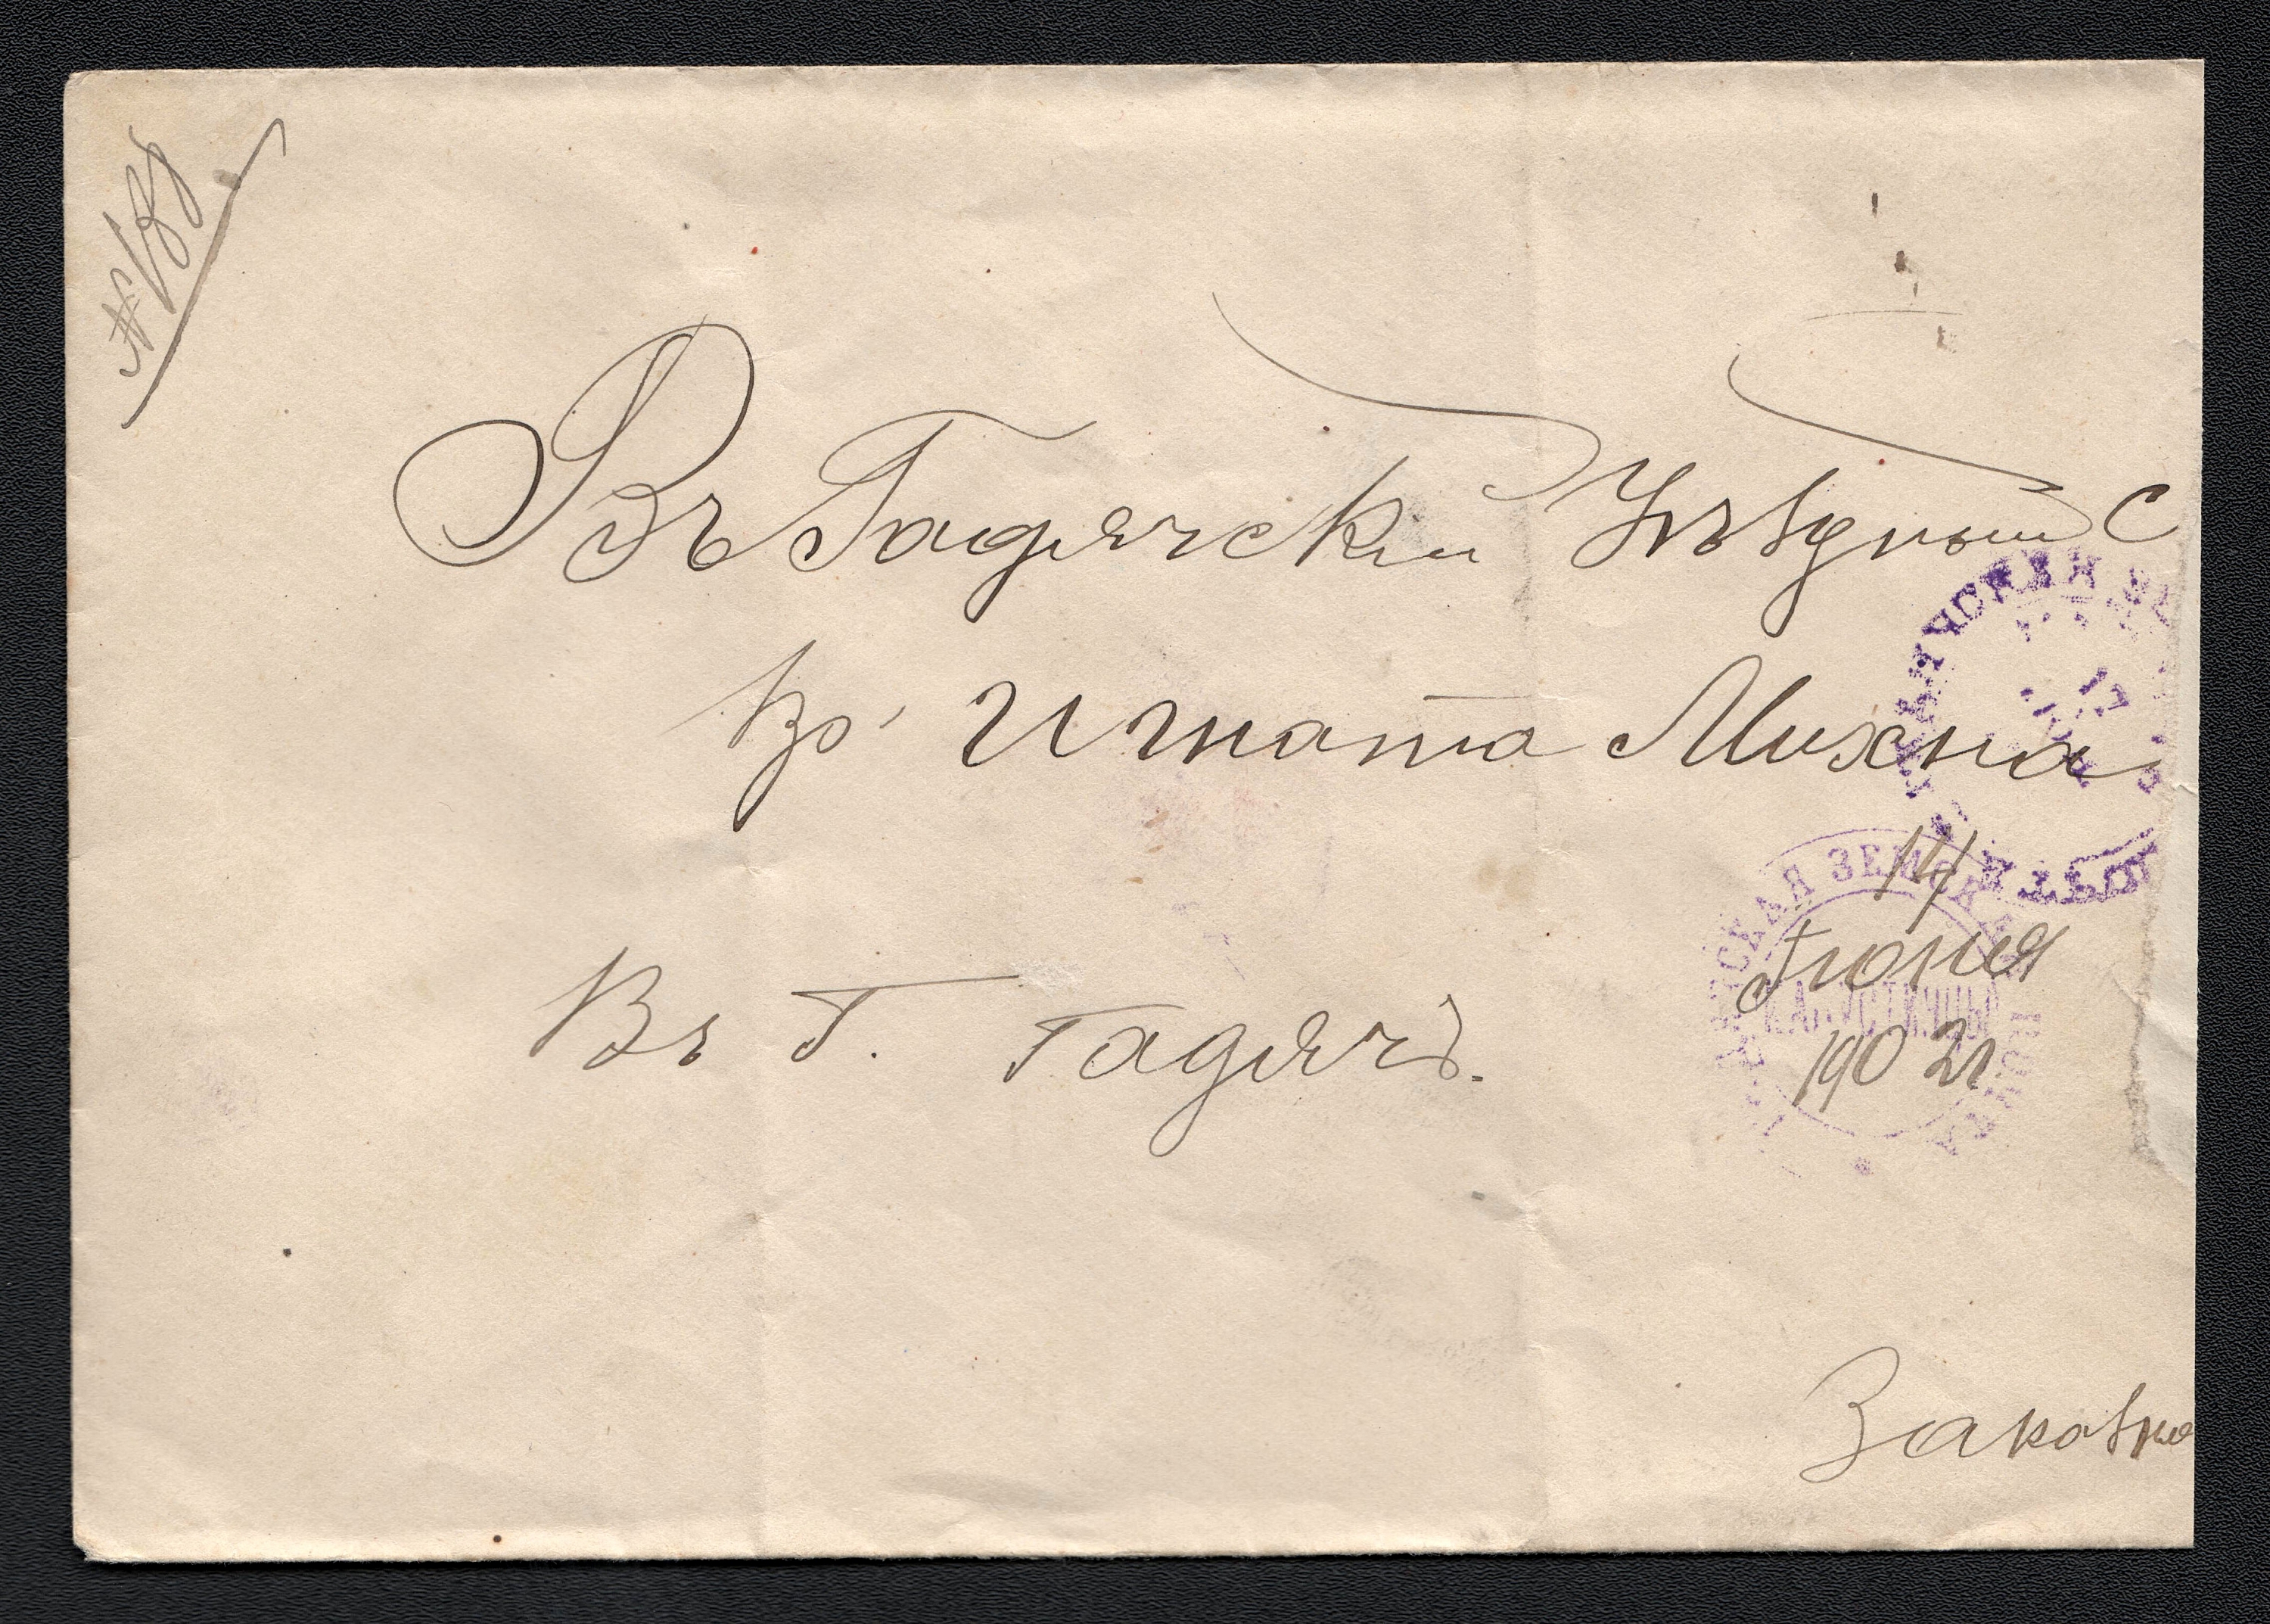 № 188
Въ Гадячскій Уѣздный С
Кр. Игната Михна
Въ г. Гадячъ.
14
Іюня
1902 г
ГАДЯЧСКАЯ ЗЕМСКАЯ
ПОЧТА
Заказно